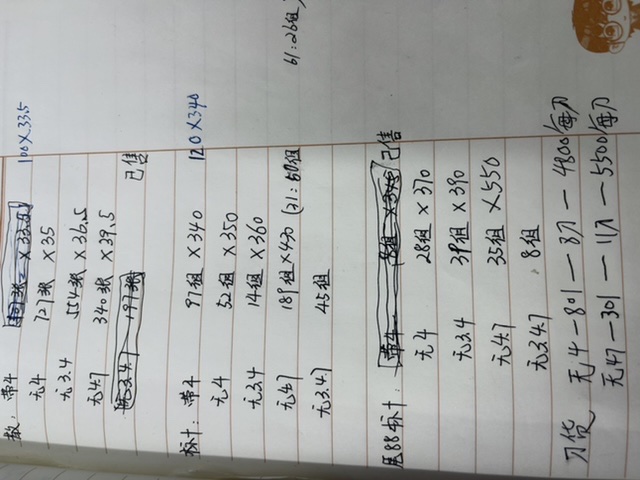 散: 带4 100×33.5
无4 727张 ×35
无3.4 554张 ×36.5
无4.7 340张 ×39.5
无3.4.7 197张 已售
标十: 带4 97组 ×340 120×340
无4 52组 ×350
无3.4 14组 ×360
无4.7 189组×430 (21: 组 61:26组)
无3.4.7 45组
尾88标十: 带4 8组 已售
无4 28组×370
无3.4 39组×390
无4.7 35组×550
无3.4.7 8组
刀货 无4—801—8刀—4800/每刀
无47—301—11刀—5500/每刀